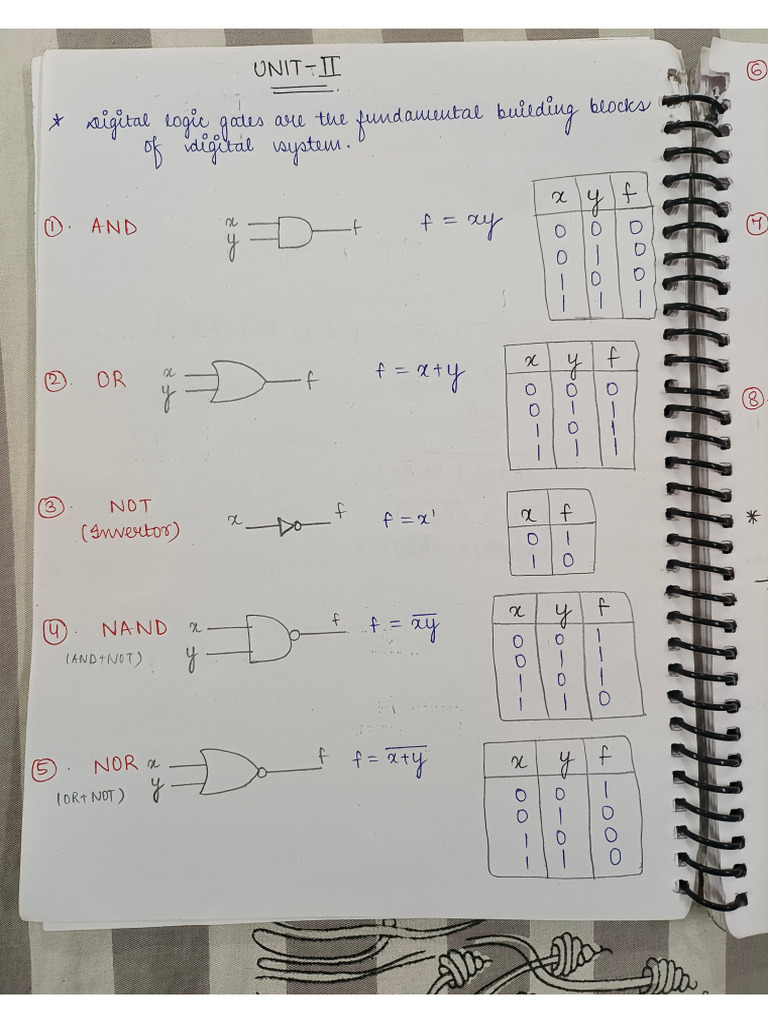 UNIT-II
* Digital logic gates are the fundamental building blocks
of digital system.
① AND
x
y
f
f = xy
x y f
0 0 0
0 1 0
1 0 0
1 1 1
② OR
x
y
f
f = x+y
x y f
0 0 0
0 1 1
1 0 1
1 1 1
③ NOT
(Invertor)
x
f
f = x'
x f
0 1
1 0
④ NAND
(AND+NOT)
x
y
f
f = x̅y̅
x y f
0 0 1
0 1 1
1 0 1
1 1 0
⑤ NOR
(OR+NOT)
x
y
f
f = x̅+̅y̅
x y f
0 0 1
0 1 0
1 0 0
1 1 0
⑥
⑦
⑧
*